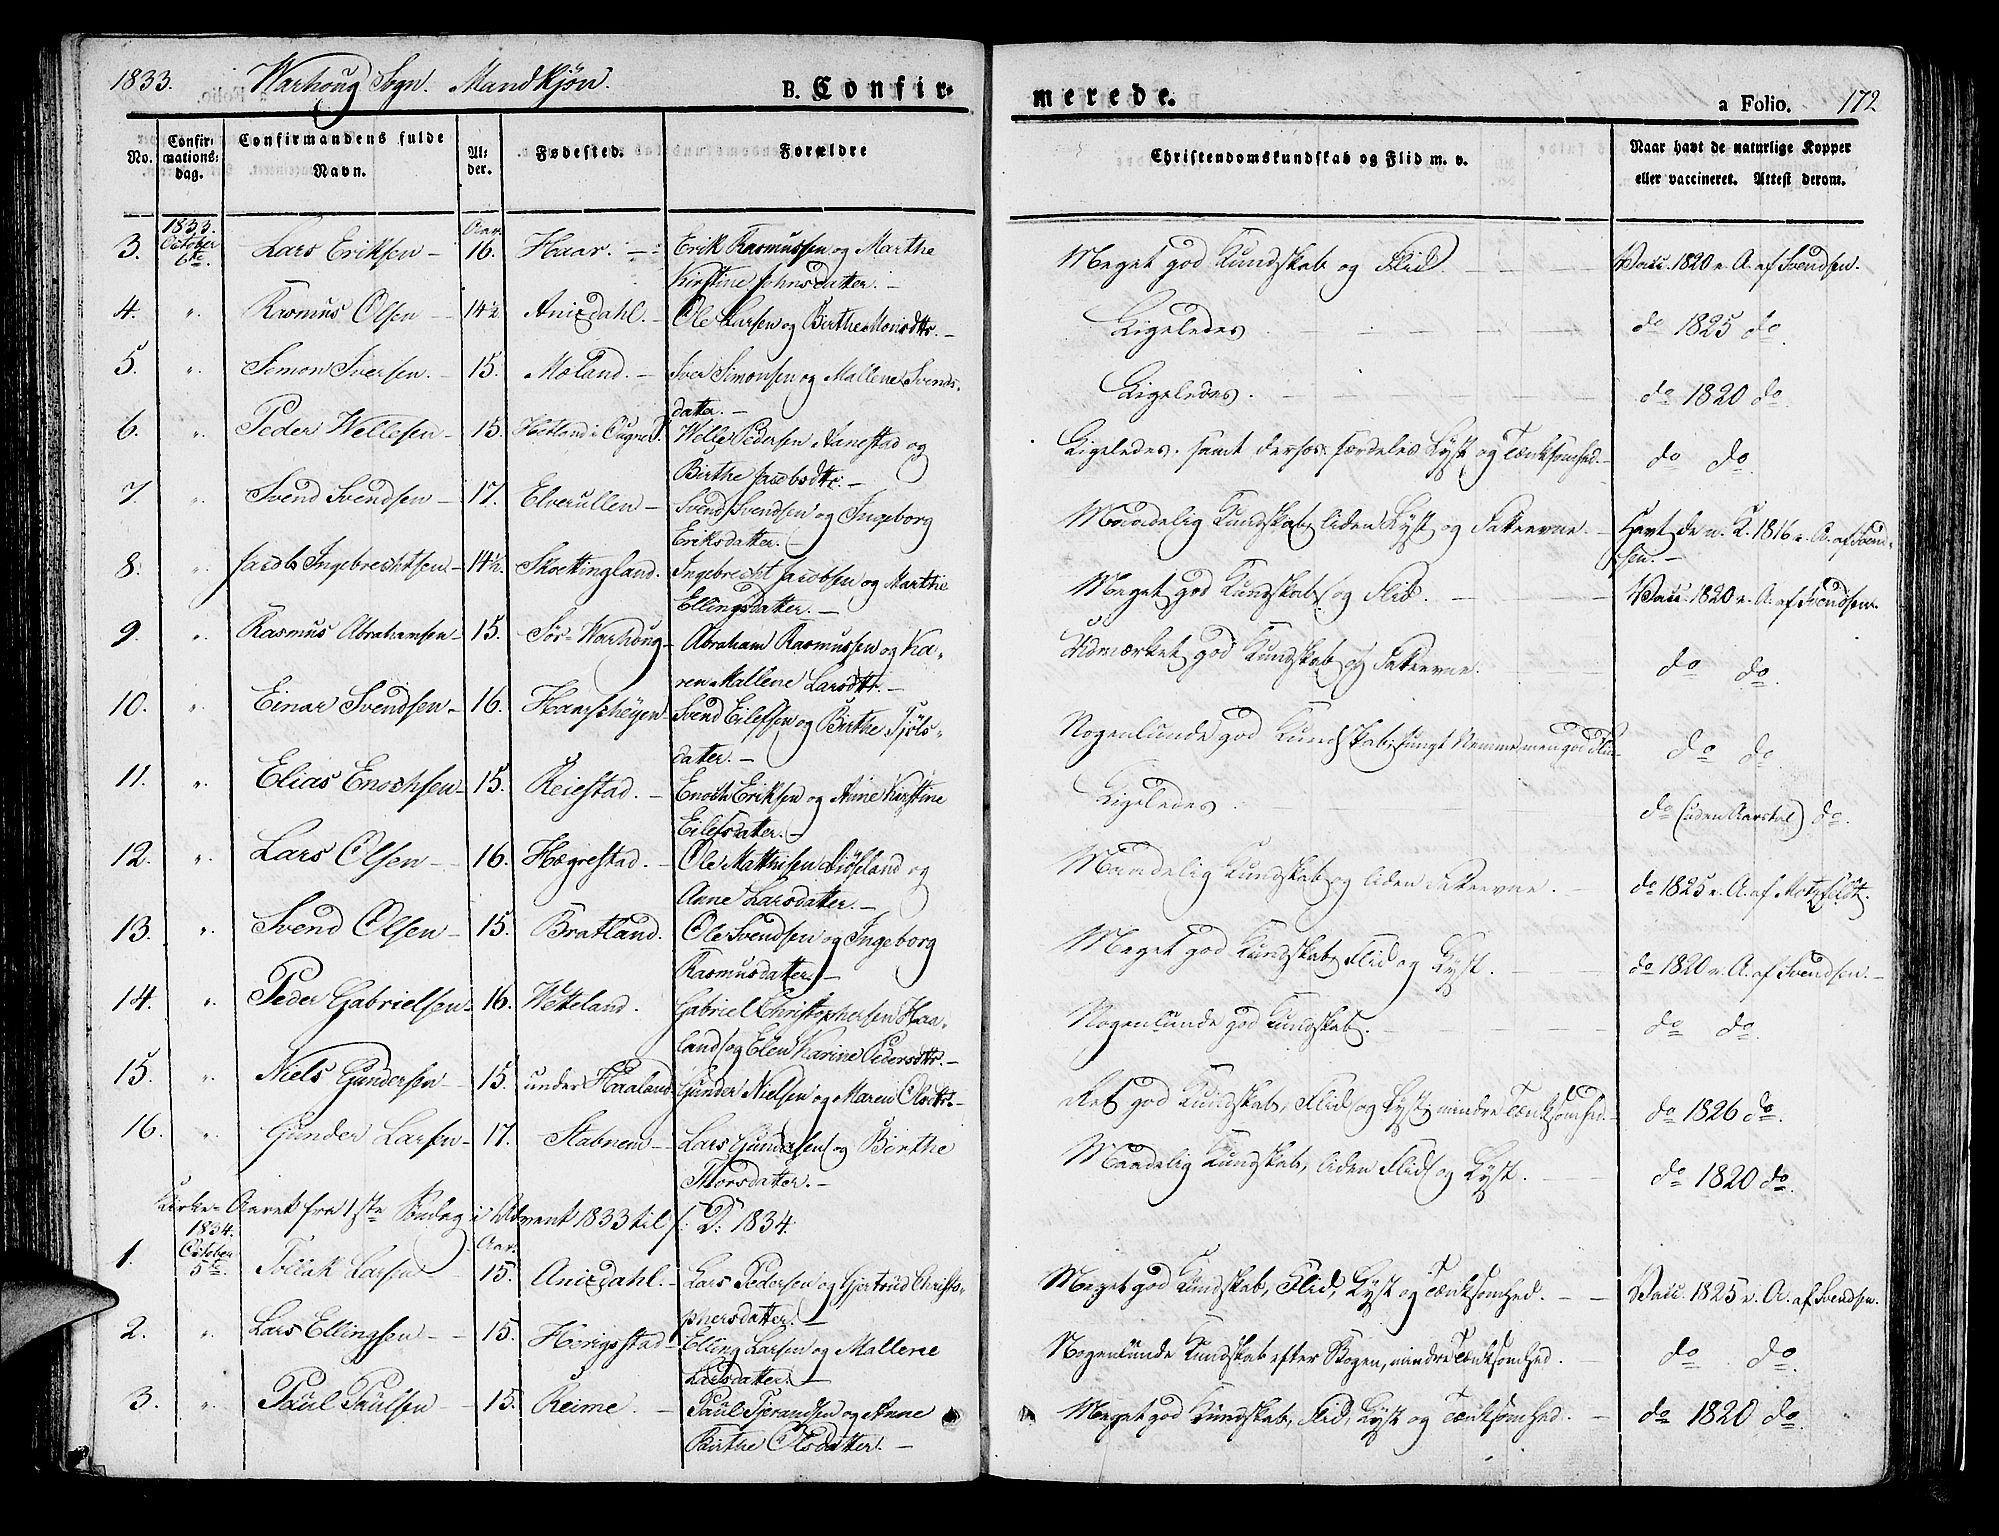 1833. Warhoug Sogn. Mandkjøn. B. Confirmerede. a Folio. 172
No. Confirmationsdag. Confirmandens fulde Navn. Alder. Fødested. Forældre Christendomskundskab og Flid m. v. Naar havt de naturlige Kopper eller vaccineret. Attest derom.
1833. Aar.
3. October 6te. Lars Eriksen 16. Haar. Erik Rasmussen og Marthe Meget god Kundskab og Flid. Vacc. 1820 e. A. af Svendsen.
Kirstine Johnsdatter.
4. ". Rasmus Olsen 14½ Anisdahl. Ole Larsen og Birthe Monsdtr. Ligeledes do 1825 do.
5. ". Simon Iversen. 15. Moland. Iver Simonsen og Mallene Svends- Ligeledes. do 1820 do.
datter.
6. ". Peder Wellesen 15. Hetland i Ougne S. Welle Pedersen Anestad og Ligeledes. samt derhos særdeles Lyst og Tænksomhed. do do.
Birthe Jacobsdtr.
7. ". Svend Svendsen 17. Elverullen Svend Svendsen og Ingeborg Maadelig Kundskab, liden Lyst og Fatteevne. Havt de n. K. 1816 e. A. af Svend-
Eriksdatter. sen.
8. ". Jacob Ingebrechtsen 14½. Skrettingland. Ingebrecht Jacobsen og Marthe Meget god Kundskab og Flid. Vacc. 1820 e. A. af Svendsen.
Ellingsdatter.
9. ". Rasmus Abrahamsen 15. Sør-Warhoug Abraham Rasmussen og Ka- Udmærket god Kundskab og Fatteevne. do do.
ren Mallene Larsdtr.
10. ". Einar Svendsen 16. Svend Eilefsen og Birthe Tjøls- Nogenlunde god Kundskab, tungt Nemme, men god Flid do do.
datter.
11. ". Elias Enochsen 15. Reiestad. Enoch Eriksen og Anne Kirstine Ligeledes do (uden Aarstal) do.
Eilefsdatter.
12. ". Lars Olsen 16. Høgrestad. Ole Mathisen og Maadelig Kundskab og liden Fatteevne. do 1825 e. A. af Motzfeldt.
Anne Larsdatter.
13. ". Svend Olsen 15. Bratland. Ole Svendsen og Ingeborg Meget god Kundskab, Flid og Lyst. do 1820 e. A. af Svendsen.
Rasmusdatter.
14. ". Peder Gabrielsen 16. Wetteland. Gabriel Christophersen Haa- Nogenlunde god Kundskab. do do.
land og Elen Karine Pedersdtr.
15. ". Niels Gundersen 15. under Haaland Gunder Nielsen og Maren Olsdtr. Ret god Kundskab, Flid og Lyst; mindre Tænksomhed. do 1826 do.
16. ". Gunder Larsen 17. Stabnem Lars Gundersen og Birthe Maadelig Kundskab, liden Flid og Lyst. do 1820 do.
Thorsdatter.
Kirke-Aaret fra 1ste Søndag i Advent 1833 til s: D: 1834.
1834. Aar.
1. October 5te. Tollak Larsen 15. Anisdahl. Lars Pedersen og Gjertrud Christo- Meget god Kundskab, Flid, Lyst og Tænksomhed. Vacc. 1825 e. A. af Svendsen.
phersdatter.
2. ". Lars Ellingsen 15. Herigstad Elling Larsen og Mallene Nogenlunde Kundskab efter Bogen, mindre Tænksomhed. do do.
Larsdatter.
3. ". Paul Paulsen 15. Reime. Paul Tjerandsen og Anne Meget god Kundskab, Flid, Lyst og Tænksomhed. do 1820 do.
Birthe Olsdatter.